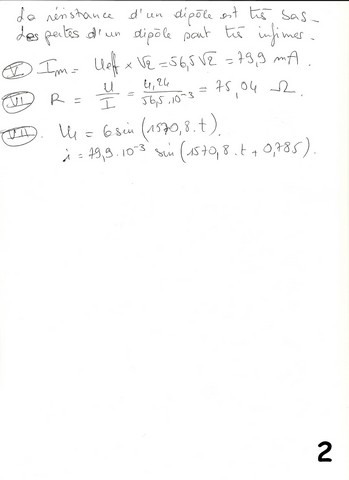 La résistance d'un dipôle est très bas.
Les pertes d'un dipôle sont très infimes.
V. Im = Ueff × √2 = 56,5 √2 = 79,9 mA.
VI R = U/I = 4,24/56,5.10⁻³ = 75,04 Ω.
VII. U1 = 6 sin (1570,8.t).
i = 79,9.10⁻³ sin (1570,8.t + 0,785).
2